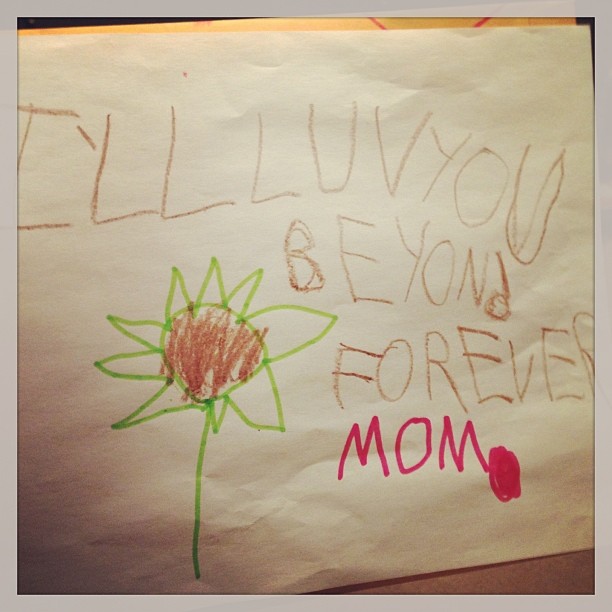 I'LL LUV YOU
BEYOND
FOREVER
MOM.